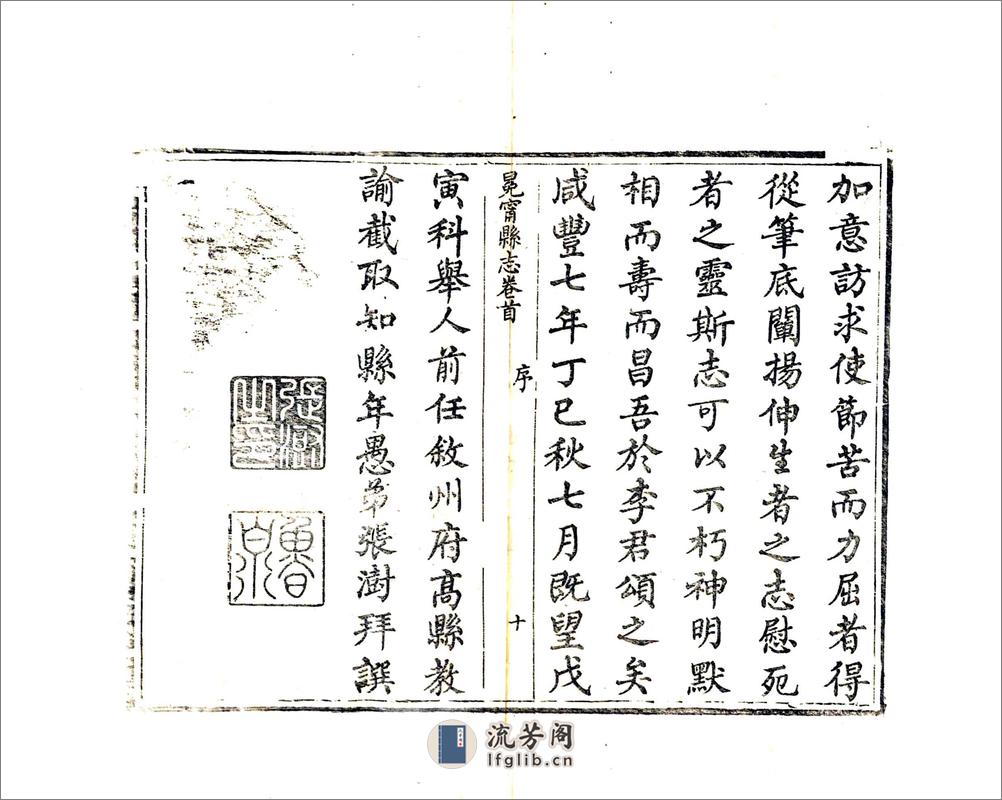 加意訪求使節苦而力屈者得
從筆底闡揚伸生者之志慰死
者之靈斯志可以不朽神明默
相而壽而昌吾於李君頌之矣
咸豐七年丁巳秋七月既望戊
冕甯縣志卷首
序
十
寅科舉人前任敘州府高縣教
諭截取知縣年愚弟張澍拜譔
張澍之印
魯泉
流芳阁
lfglib.cn